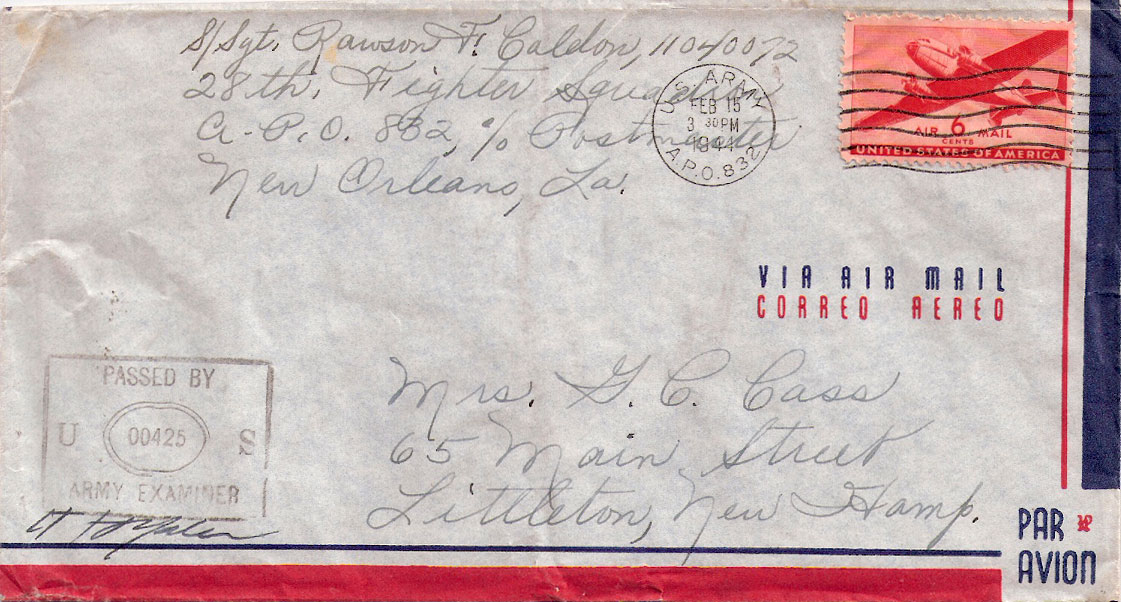 S/Sgt. Rawson F. Caldon, 11040072
28th. Fighter Squadron
A.P.O. 832, % Postmaster
New Orleans, La.
U.S. ARMY
FEB 15
3 30 PM
1944
A.P.O. 832
AIR 6 MAIL
CENTS
UNITED STATES OF AMERICA
VIA AIR MAIL
CORREO AEREO
PASSED BY
U 00425 S
ARMY EXAMINER
Mrs. G. C. Cass
65 Main Street
Littleton, New Hamp.
PAR
AVION